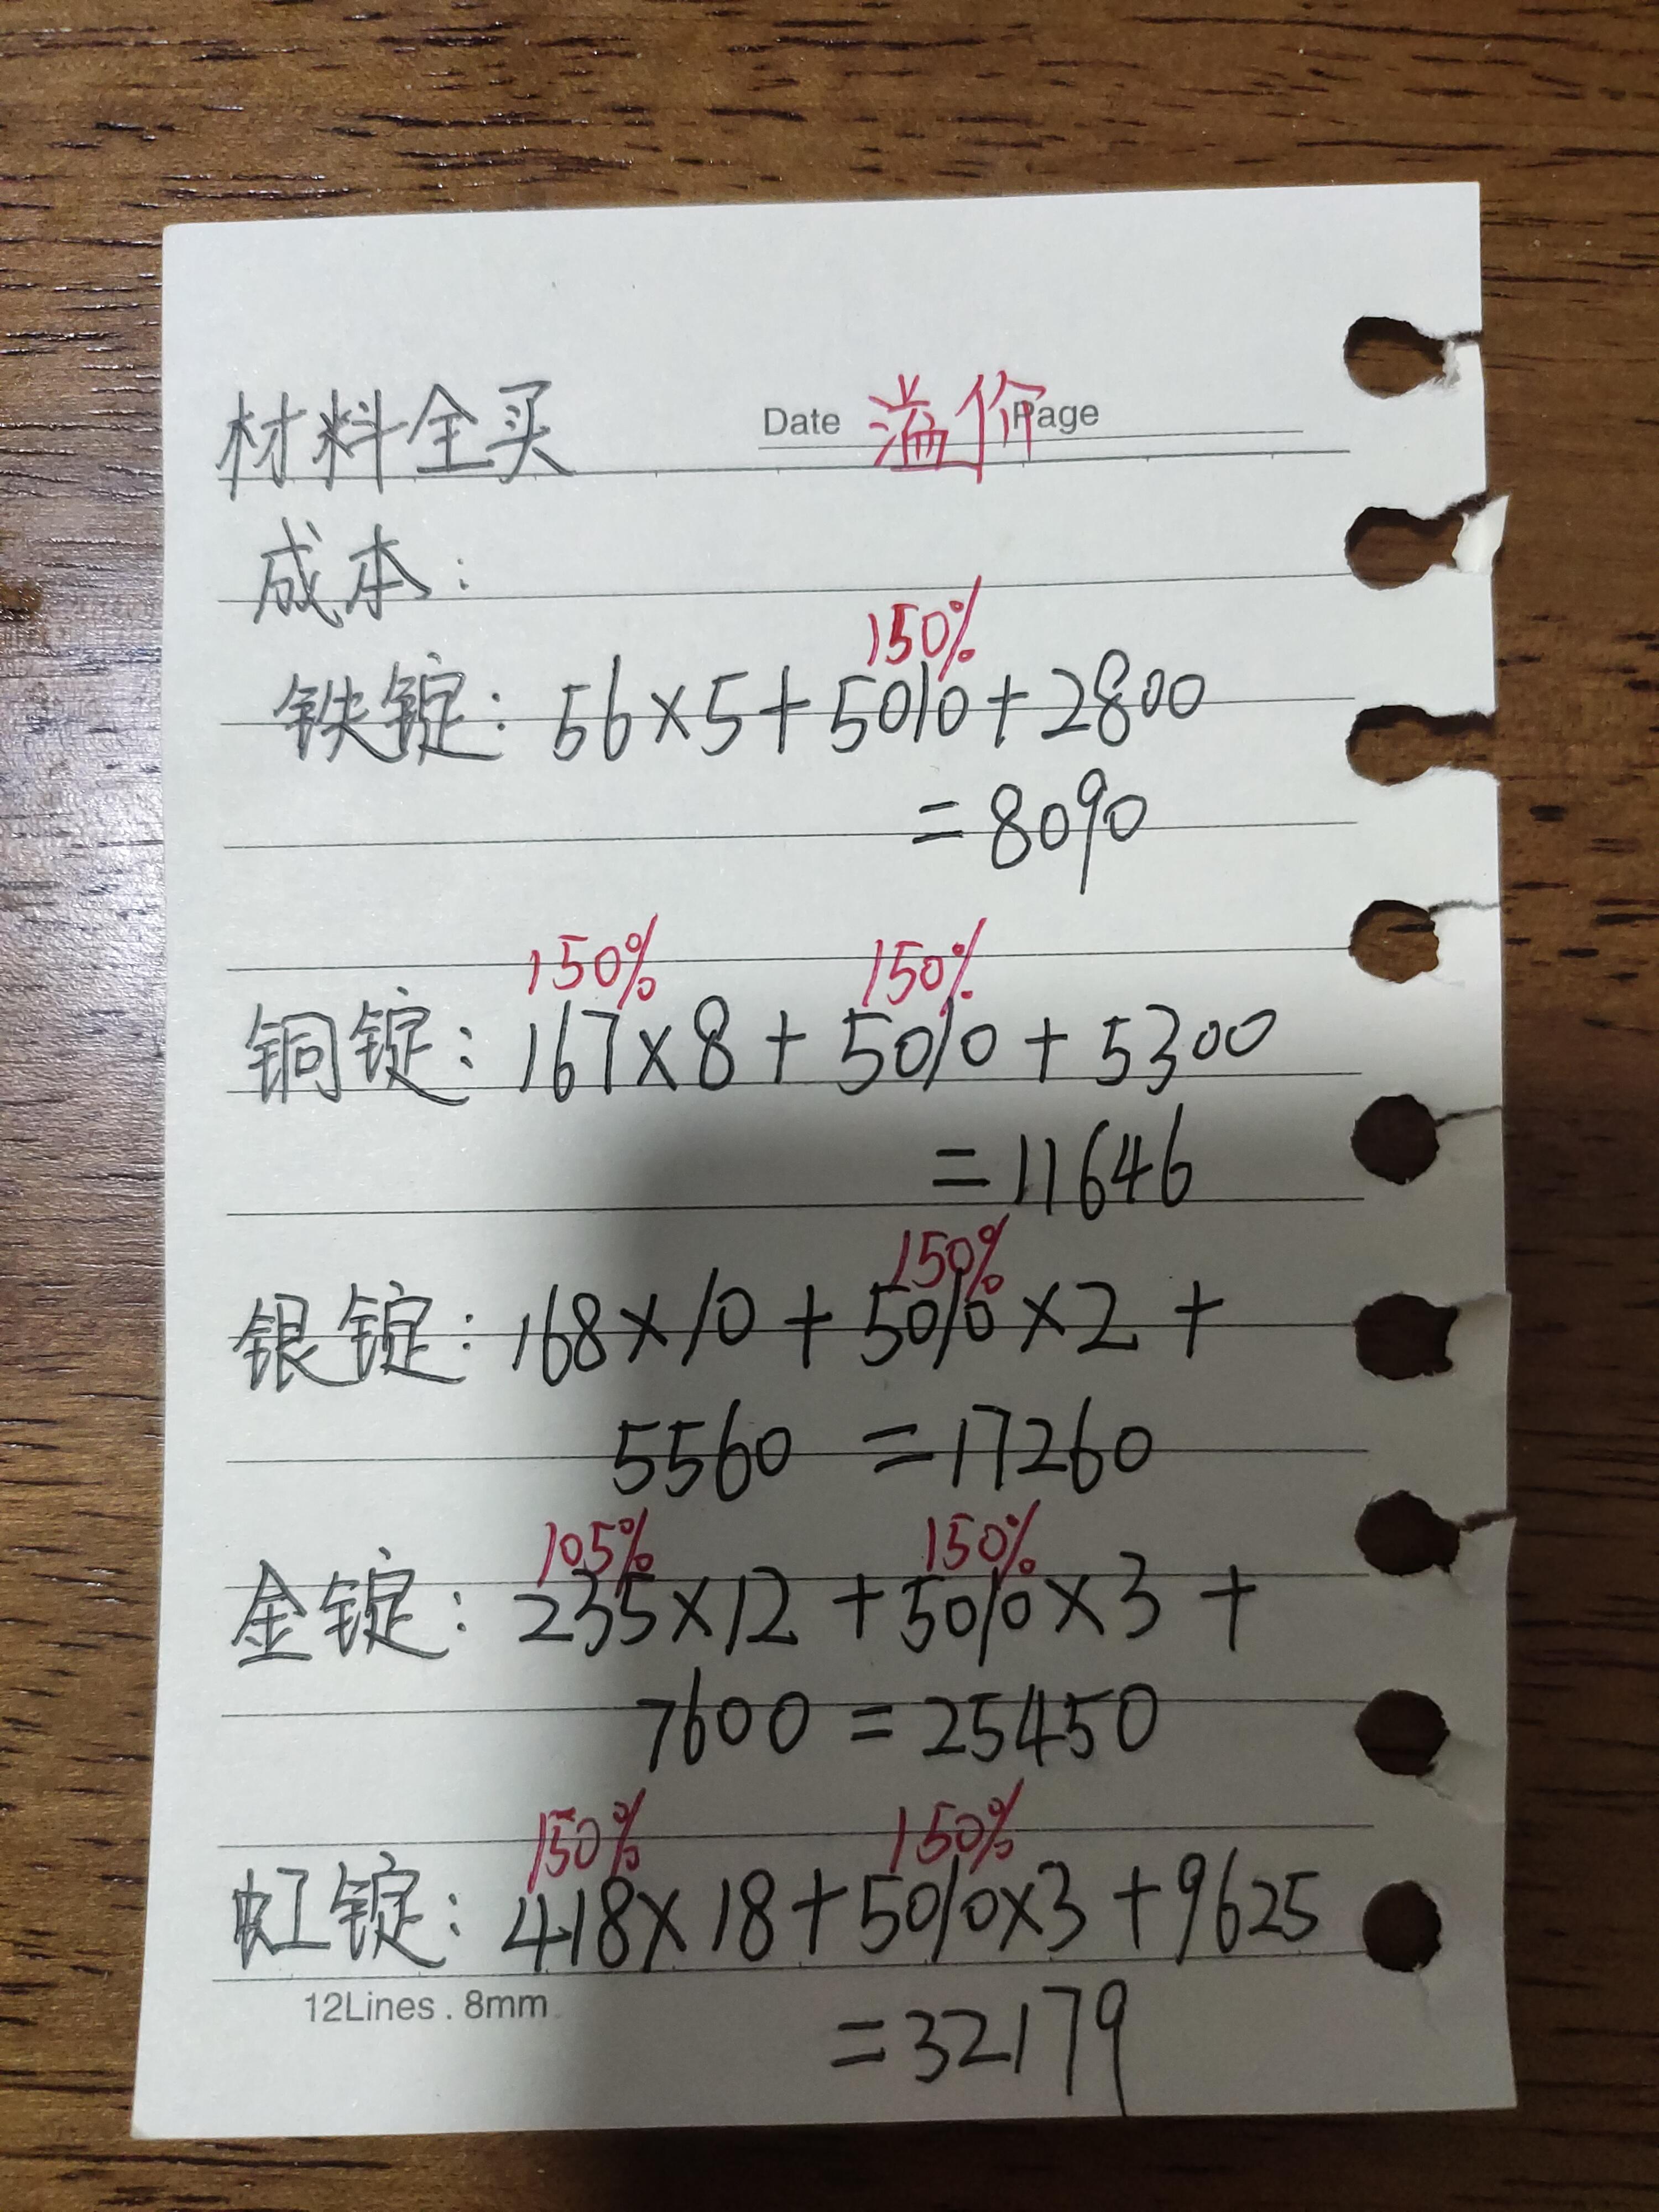 材料全买 Date 溢价 Page
成本:
150%
铁锭: 56×5+5010+2800
=8090
150% 150%
铜锭: 167×8+5010+5300
=11646
150%
银锭: 168×10+5010×2+
5560 =17260
105% 150%
金锭: 235×12+5010×3+
7600=25450
150% 150%
虹锭: 418×18+5010×3+9625
12Lines . 8mm
=32179